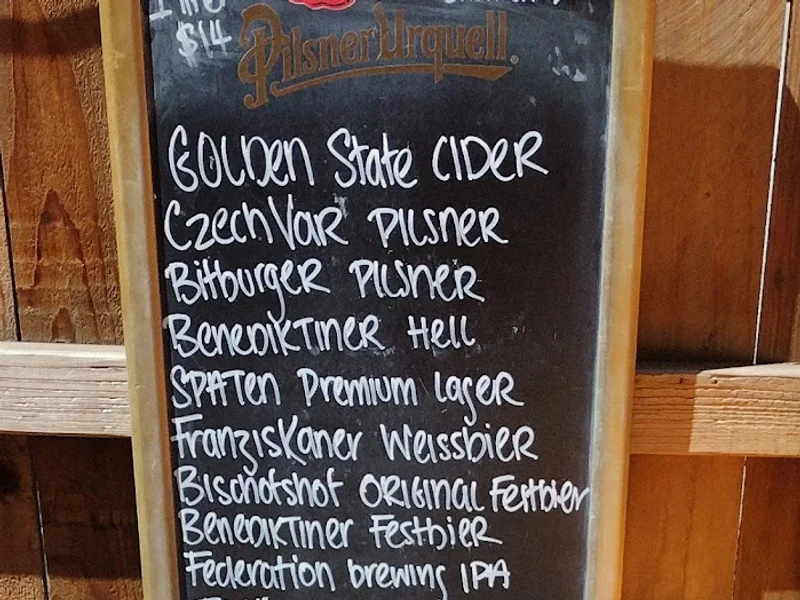 $14
Pilsner Urquell
GOLDEN State CIDER
CzechVar PILSNER
Bitburger PILSNER
Benediktiner Hell
SPATEN Premium Lager
Franziskaner Weissbier
Bischofshof ORIGINAL Festbier
Benediktiner Festbier
Federation brewing IPA